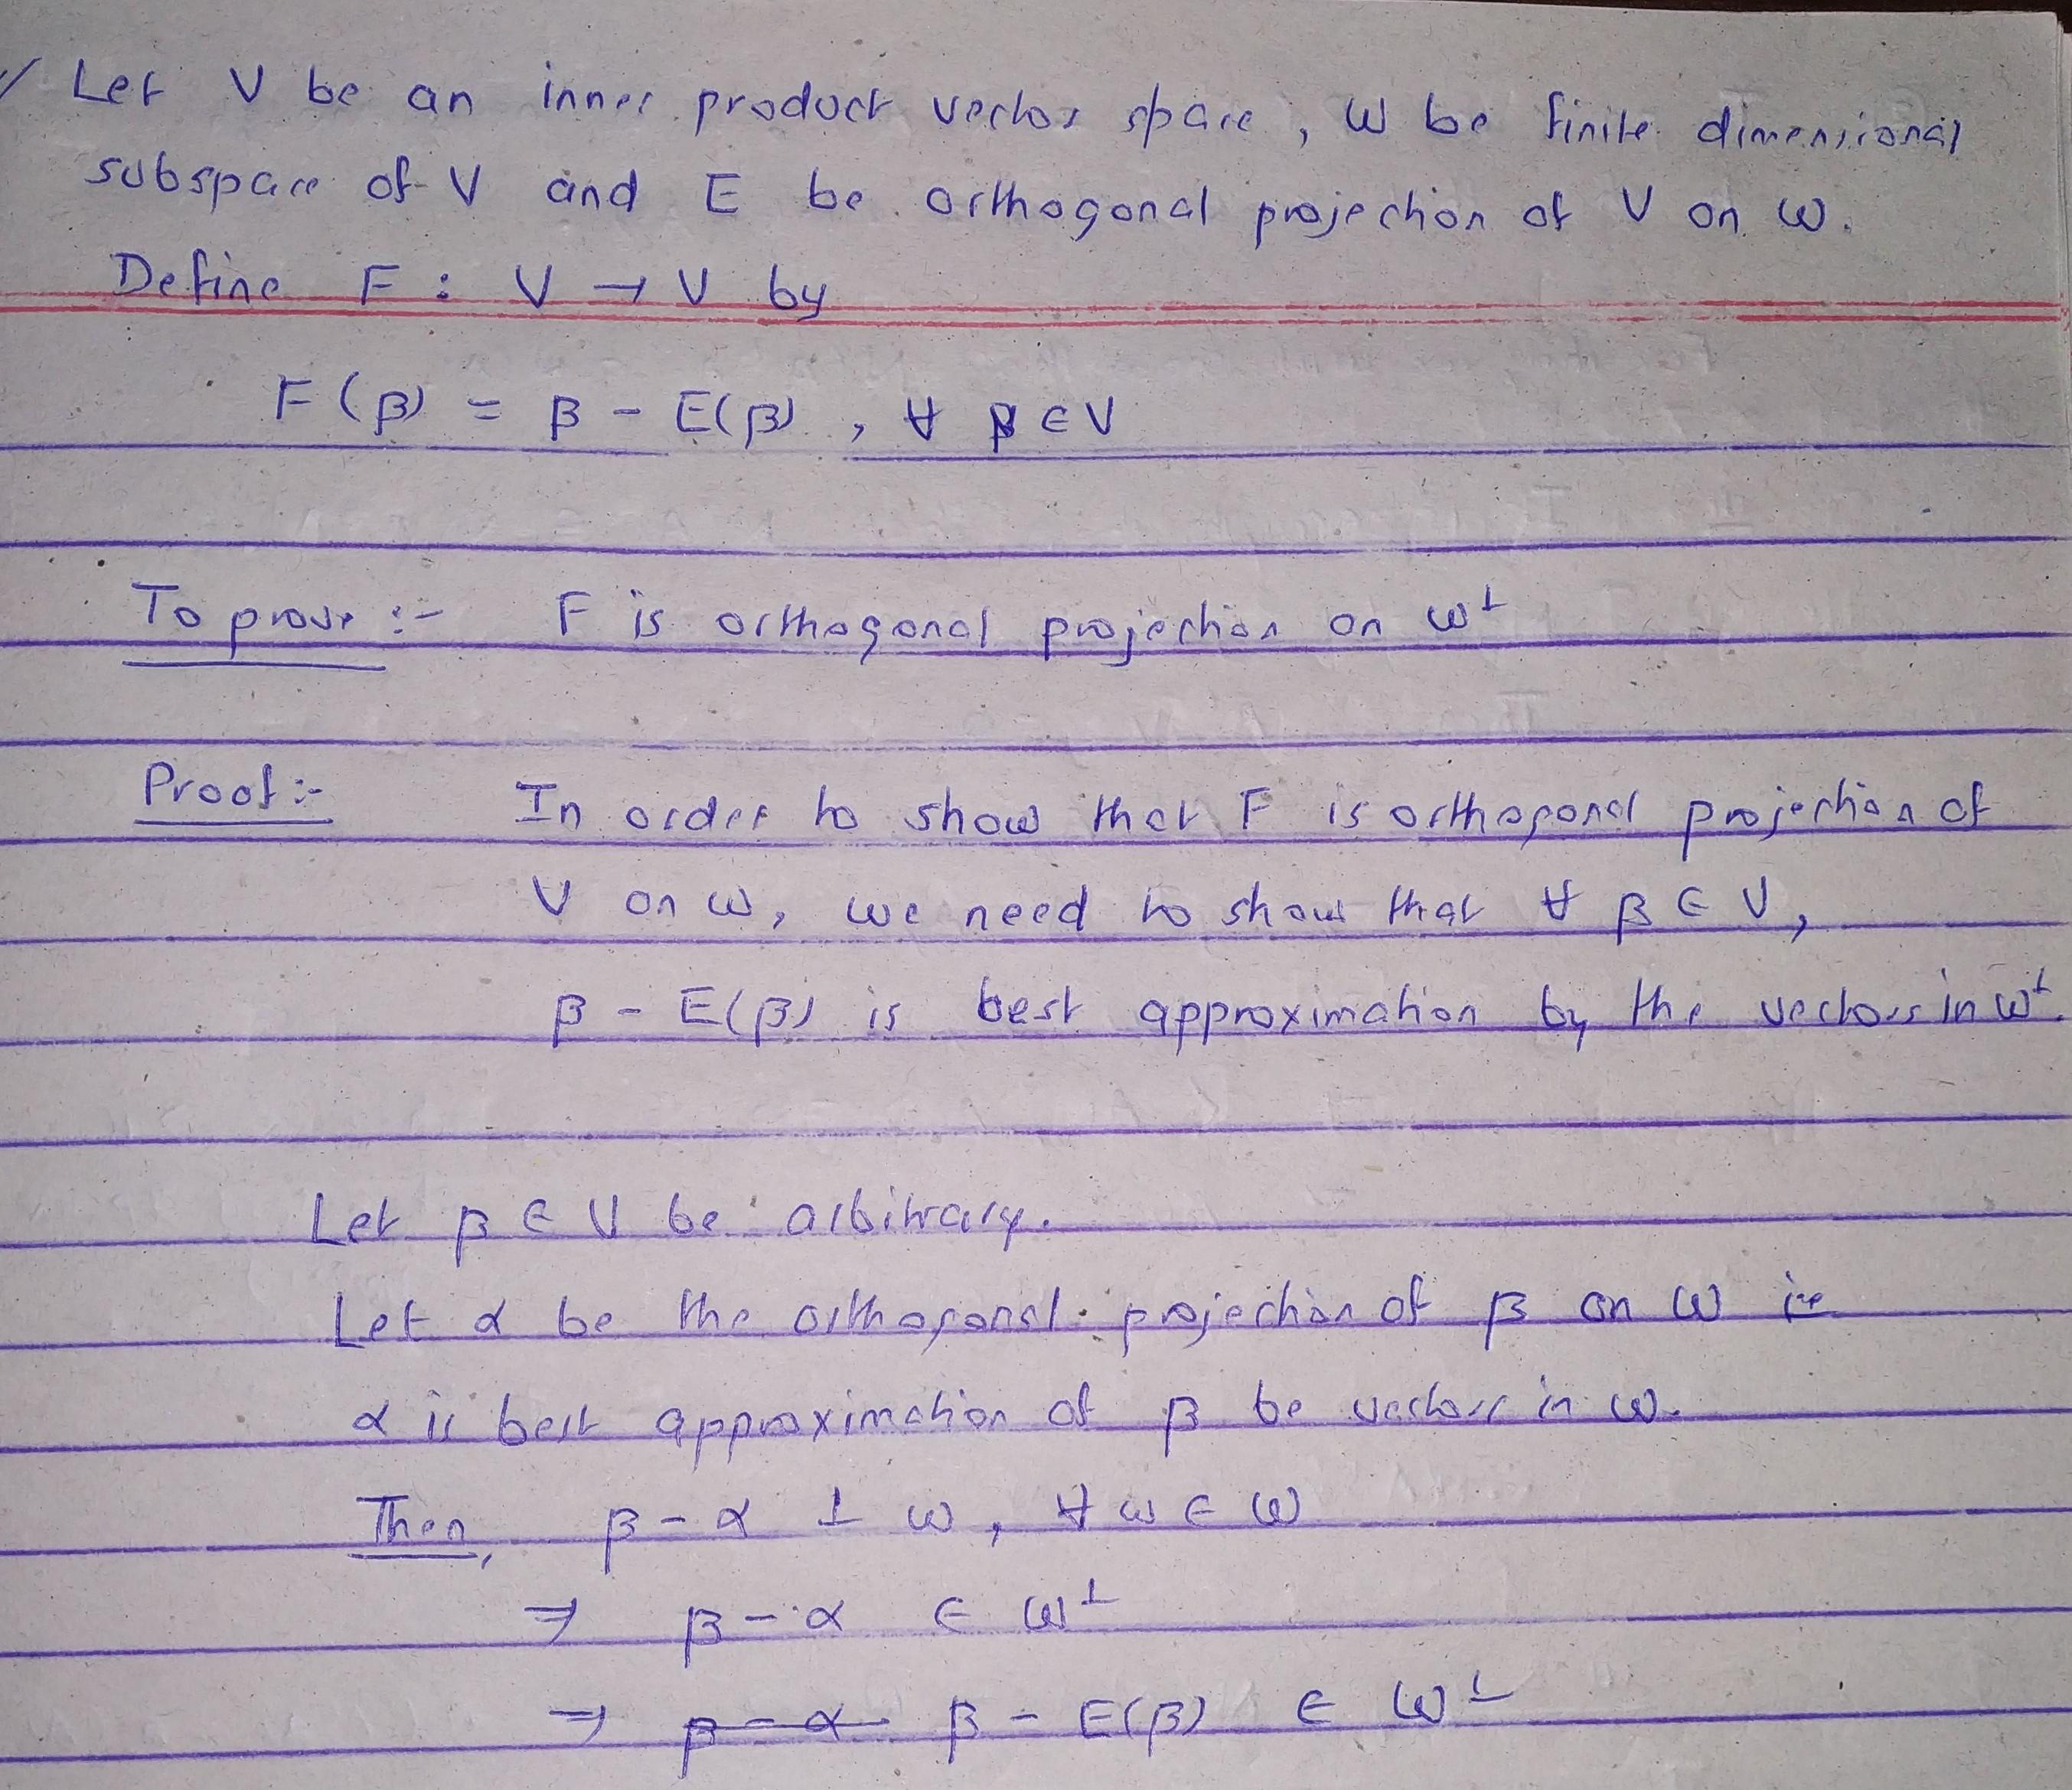 Let V be an inner product vector space, W be finite dimensional
subspace of V and E be orthogonal projection of V on W.
Define F : V → V by
F(β) = β - E(β), ∀ β ∈ V
To prove :- F is orthogonal projection on W⊥
Proof :- In order to show that F is orthogonal projection of
V on W, we need to show that ∀ β ∈ V,
β - E(β) is best approximation by the vectors in W⊥.
Let β ∈ V be arbitrary.
Let α be the orthogonal projection of β on W ie
α is best approximation of β be vectors in W.
Then, β - α ⊥ w, ∀ w ∈ W
⇒ β - α ∈ W⊥
⇒ β - α β - E(β) ∈ W⊥